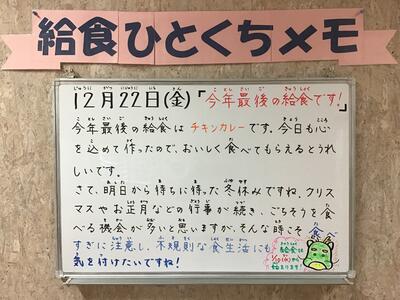 給食ひとくちメモ
12月22日(金)「今年最後の給食です!」
今年最後の給食はチキンカレーです。今日も心
を込めて作ったので、おいしく食べてもらえるとうれ
しいです。
さて、明日から待ちに待った冬休みですね。クリス
マスやお正月などの行事が続き、ごちそうを食
べる機会が多いと思いますが、そんな時こそ食べ
すぎに注意し、不規則な食生活にも
気を付けたいですね!
給食は
から
始まります!